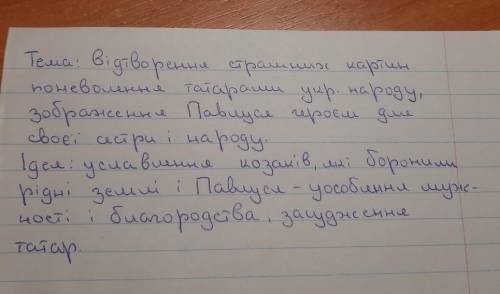 Тема: Відтворення страшних картин
поневолення татарами укр. народу,
зображення Павлуся героєм для
своєї сестри і народу.
Ідея: уславлення козаків, які боронили
рідні землі і Павлуся - уособлення муж-
ності і благородства, засудження
татар.